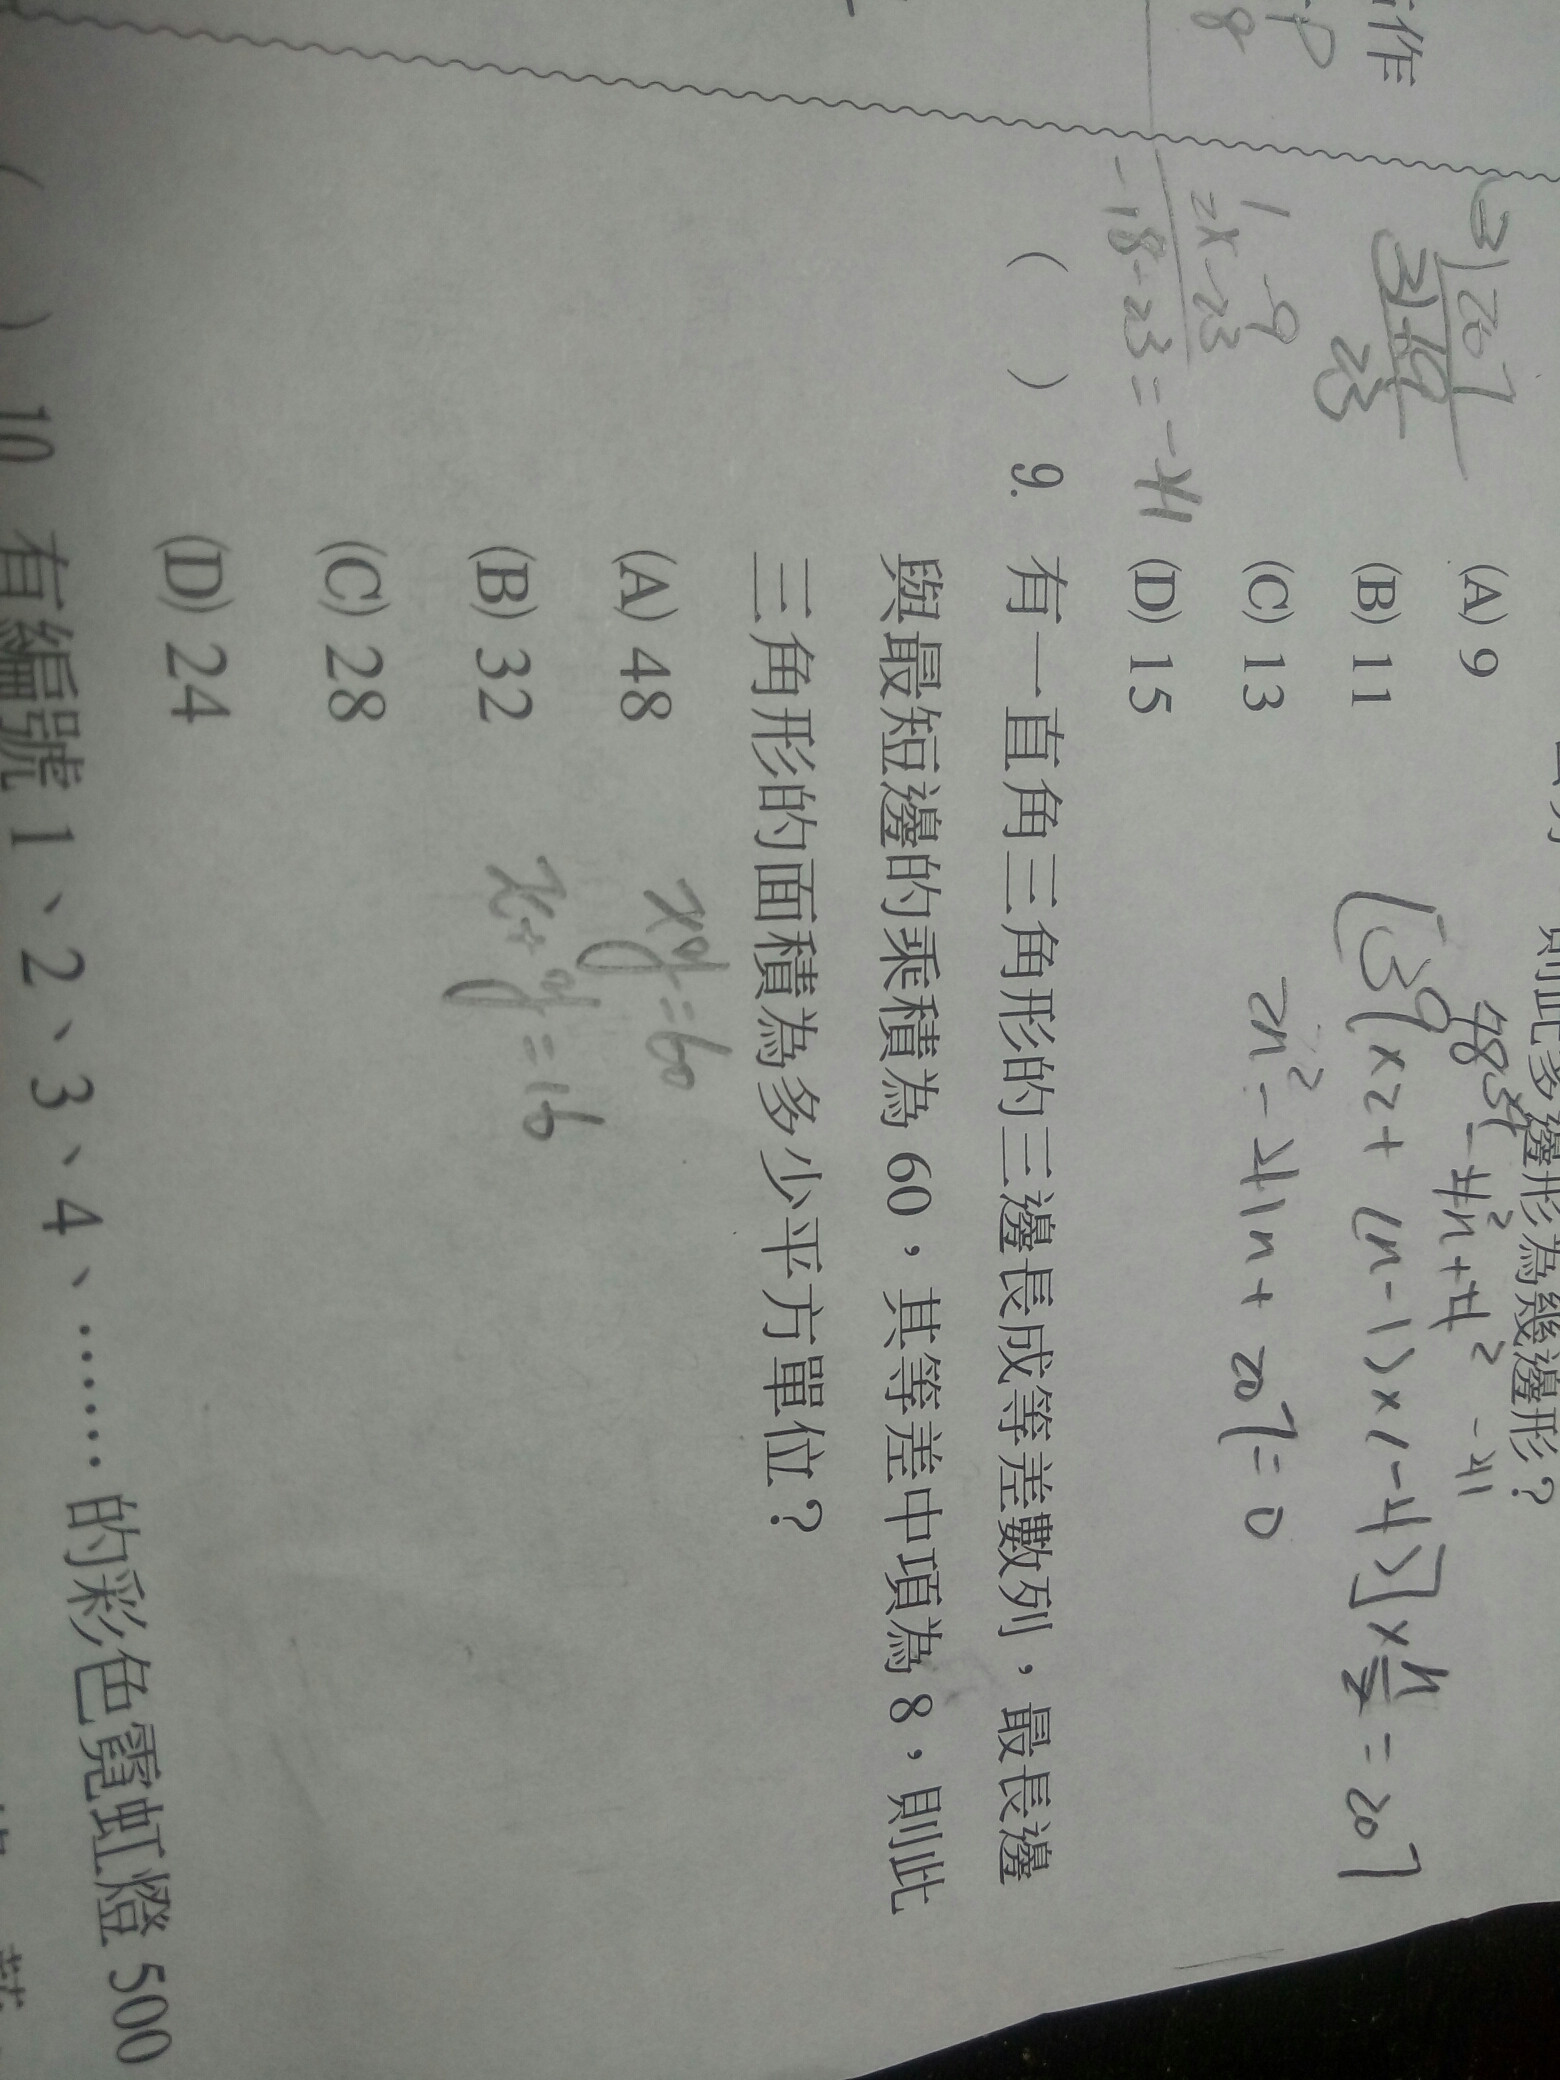 作
P
8
則此多邊形為幾邊形？
(A) 9
(B) 11
(C) 13
(D) 15
3
207
23
1 -9
2x -23
-18-23=-41
-4n²+4² -41
[39×2+(n-1)×(-4)]×n/2=207
2n²-41n+207=0
( ) 9. 有一直角三角形的三邊長成等差數列，最長邊
與最短邊的乘積為 60，其等差中項為 8，則此
三角形的面積為多少平方單位？
(A) 48
(B) 32
(C) 28
(D) 24
xy=60
x+y=16
( ) 10 有編號 1、2、3、4、……的彩色霓虹燈 500